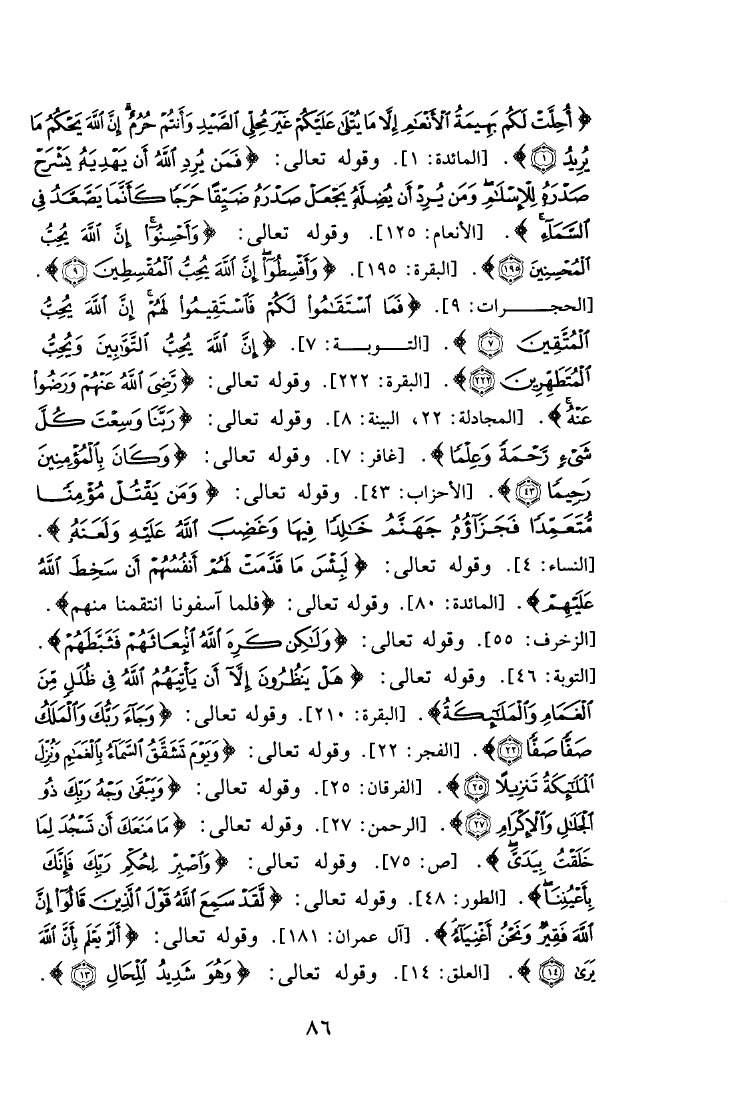 ﴿ أُحِلَّتْ لَكُم بَهِيمَةُ ٱلْأَنْعَٰمِ إِلَّا مَا يُتْلَىٰ عَلَيْكُمْ غَيْرَ مُحِلِّى ٱلصَّيْدِ وَأَنتُمْ حُرُمٌ ۗ إِنَّ ٱللَّهَ يَحْكُمُ مَا
يُرِيدُ ١﴾. [المائدة: ١]. وقوله تعالى: ﴿فَمَن يُرِدِ ٱللَّهُ أَن يَهْدِيَهُۥ يَشْرَحْ
صَدْرَهُۥ لِلْإِسْلَٰمِ ۖ وَمَن يُرِدْ أَن يُضِلَّهُۥ يَجْعَلْ صَدْرَهُۥ ضَيِّقًا حَرَجًا كَأَنَّمَا يَصَّعَّدُ فِى
ٱلسَّمَآءِ ۚ ﴾. [الأنعام: ١٢٥]. وقوله تعالى: ﴿وَأَحْسِنُوٓا۟ ۛ إِنَّ ٱللَّهَ يُحِبُّ
ٱلْمُحْسِنِينَ ١٩٥﴾. [البقرة: ١٩٥]. ﴿وَأَقْسِطُوٓا۟ ۖ إِنَّ ٱللَّهَ يُحِبُّ ٱلْمُقْسِطِينَ ٩﴾.
[الحجرات: ٩]. ﴿فَمَا ٱسْتَقَٰمُوا۟ لَكُمْ فَٱسْتَقِيمُوا۟ لَهُمْ ۚ إِنَّ ٱللَّهَ يُحِبُّ
ٱلْمُتَّقِينَ ٧ ﴾. [التوبة: ٧]. ﴿إِنَّ ٱللَّهَ يُحِبُّ ٱلتَّوَّٰبِينَ وَيُحِبُّ
ٱلْمُتَطَهِّرِينَ ٢٢٢﴾. [البقرة: ٢٢٢]. وقوله تعالى: ﴿رَّضِىَ ٱللَّهُ عَنْهُمْ وَرَضُوا۟
عَنْهُ ۚ﴾. [المجادلة: ٢٢، البينة: ٨]. وقوله تعالى: ﴿رَبَّنَا وَسِعْتَ كُلَّ
شَىْءٍ رَّحْمَةً وَعِلْمًا﴾. [غافر: ٧]. وقوله تعالى: ﴿وَكَانَ بِٱلْمُؤْمِنِينَ
رَحِيمًا ٤٣﴾. [الأحزاب: ٤٣]. وقوله تعالى: ﴿ وَمَن يَقْتُلْ مُؤْمِنًا
مُّتَعَمِّدًا فَجَزَآؤُهُۥ جَهَنَّمُ خَٰلِدًا فِيهَا وَغَضِبَ ٱللَّهُ عَلَيْهِ وَلَعَنَهُۥ ﴾.
[النساء: ٤]. وقوله تعالى: ﴿ لَبِئْسَ مَا قَدَّمَتْ لَهُمْ أَنفُسُهُمْ أَن سَخِطَ ٱللَّهُ
عَلَيْهِمْ﴾. [المائدة: ٨٠]. وقوله تعالى: ﴿فلما آسفونا انتقمنا منهم﴾.
[الزخرف: ٥٥]. وقوله تعالى: ﴿وَلَٰكِن كَرِهَ ٱللَّهُ ٱنۢبِعَاثَهُمْ فَثَبَّطَهُمْ﴾.
[التوبة: ٤٦]. وقوله تعالى: ﴿ هَلْ يَنظُرُونَ إِلَّآ أَن يَأْتِيَهُمُ ٱللَّهُ فِى ظُلَلٍ مِّنَ
ٱلْغَمَامِ وَٱلْمَلَٰٓئِكَةُ﴾. [البقرة: ٢١٠]. وقوله تعالى: ﴿ وَجَآءَ رَبُّكَ وَٱلْمَلَكُ
صَفًّا صَفًّا ٢٢﴾. [الفجر: ٢٢]. وقوله تعالى: ﴿وَيَوْمَ تَشَقَّقُ ٱلسَّمَآءُ بِٱلْغَمَٰمِ وَنُزِّلَ
ٱلْمَلَٰٓئِكَةُ تَنزِيلًا ٢٥﴾. [الفرقان: ٢٥]. وقوله تعالى: ﴿وَيَبْقَىٰ وَجْهُ رَبِّكَ ذُو
ٱلْجَلَٰلِ وَٱلْإِكْرَامِ ٢٧﴾. [الرحمن: ٢٧]. وقوله تعالى: ﴿ مَا مَنَعَكَ أَن تَسْجُدَ لِمَا
خَلَقْتُ بِيَدَىَّ ۖ ﴾. [ص: ٧٥]. وقوله تعالى: ﴿وَٱصْبِرْ لِحُكْمِ رَبِّكَ فَإِنَّكَ
بِأَعْيُنِنَا ۖ﴾. [الطور: ٤٨]. وقوله تعالى: ﴿ لَّقَدْ سَمِعَ ٱللَّهُ قَوْلَ ٱلَّذِينَ قَالُوٓا۟ إِنَّ
ٱللَّهَ فَقِيرٌ وَنَحْنُ أَغْنِيَآءُ﴾. [آل عمران: ١٨١]. وقوله تعالى: ﴿أَلَمْ يَعْلَم بِأَنَّ ٱللَّهَ
يَرَىٰ ١٤ ﴾. [العلق: ١٤]. وقوله تعالى: ﴿وَهُوَ شَدِيدُ ٱلْمِحَالِ ١٣ ﴾.
٨٦